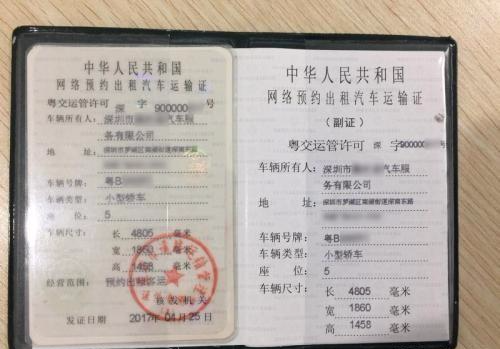 中华人民共和国
网络预约出租汽车运输证
粤交运管许可 深 字 900000 号
车辆所有人：深圳市 汽车服
务有限公司
地 址：深圳市罗湖区南湖街道深南东路
车辆号牌：粤B
车辆类型：小型轿车
座 位：5
车辆尺寸：长 4805 毫米
宽 1860 毫米
高 1458 毫米
经营范围：预约出租客运
核发机关
发证日期 2017年 04月 25日
中华人民共和国
网络预约出租汽车运输证
（副证）
粤交运管许可 深 字 90000 号
车辆所有人：深圳市 汽车服
务有限公司
地 址：深圳市罗湖区南湖街道深南东路
车辆号牌：粤B
车辆类型：小型轿车
座 位：5
车辆尺寸：长 4805 毫米
宽 1860 毫米
高 1458 毫米